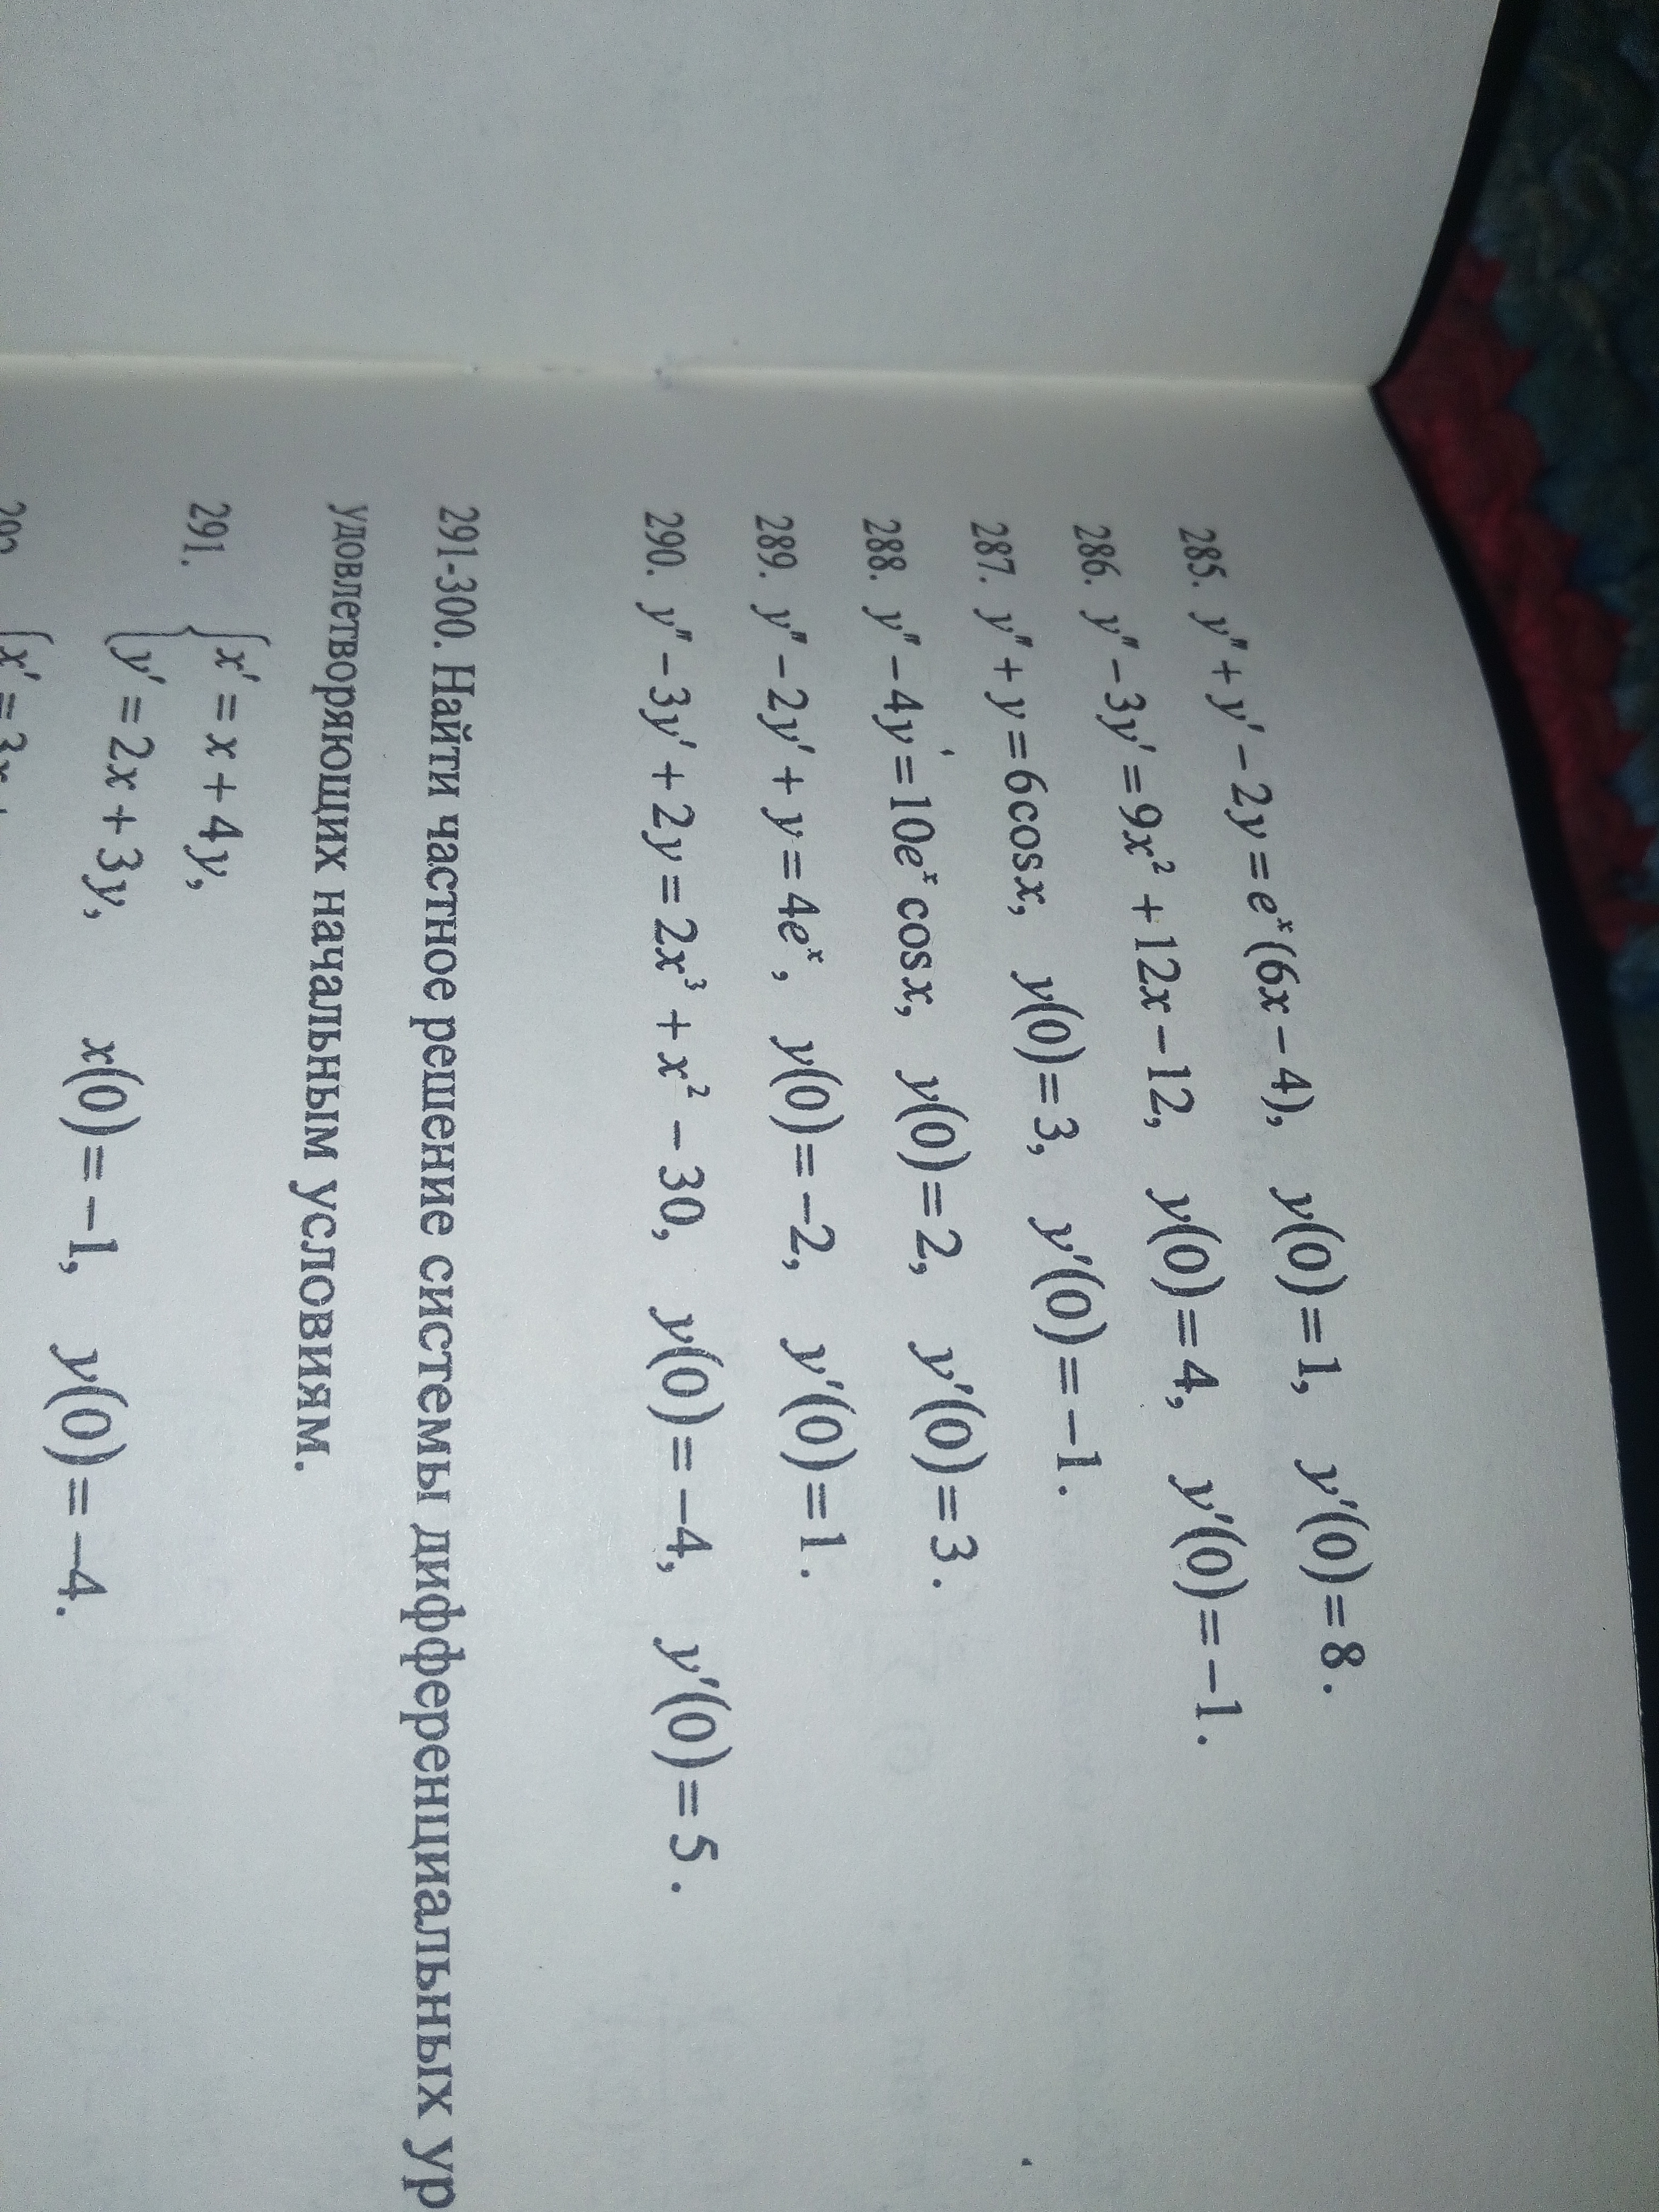 285. y″ + y′ − 2y = eˣ(6x − 4), y(0) = 1, y′(0) = 8.
286. y″ − 3y′ = 9x² + 12x − 12, y(0) = 4, y′(0) = −1.
287. y″ + y = 6cosx, y(0) = 3, y′(0) = −1.
288. y″ − 4y′ = 10eˣ cosx, y(0) = 2, y′(0) = 3.
289. y″ − 2y′ + y = 4eˣ, y(0) = −2, y′(0) = 1.
290. y″ − 3y′ + 2y = 2x³ + x² − 30, y(0) = −4, y′(0) = 5.
291-300. Найти частное решение системы дифференциальных ур
удовлетворяющих начальным условиям.
291. { x′ = x + 4y,
y′ = 2x + 3y, x(0) = −1, y(0) = −4.
{ x′ = 3x